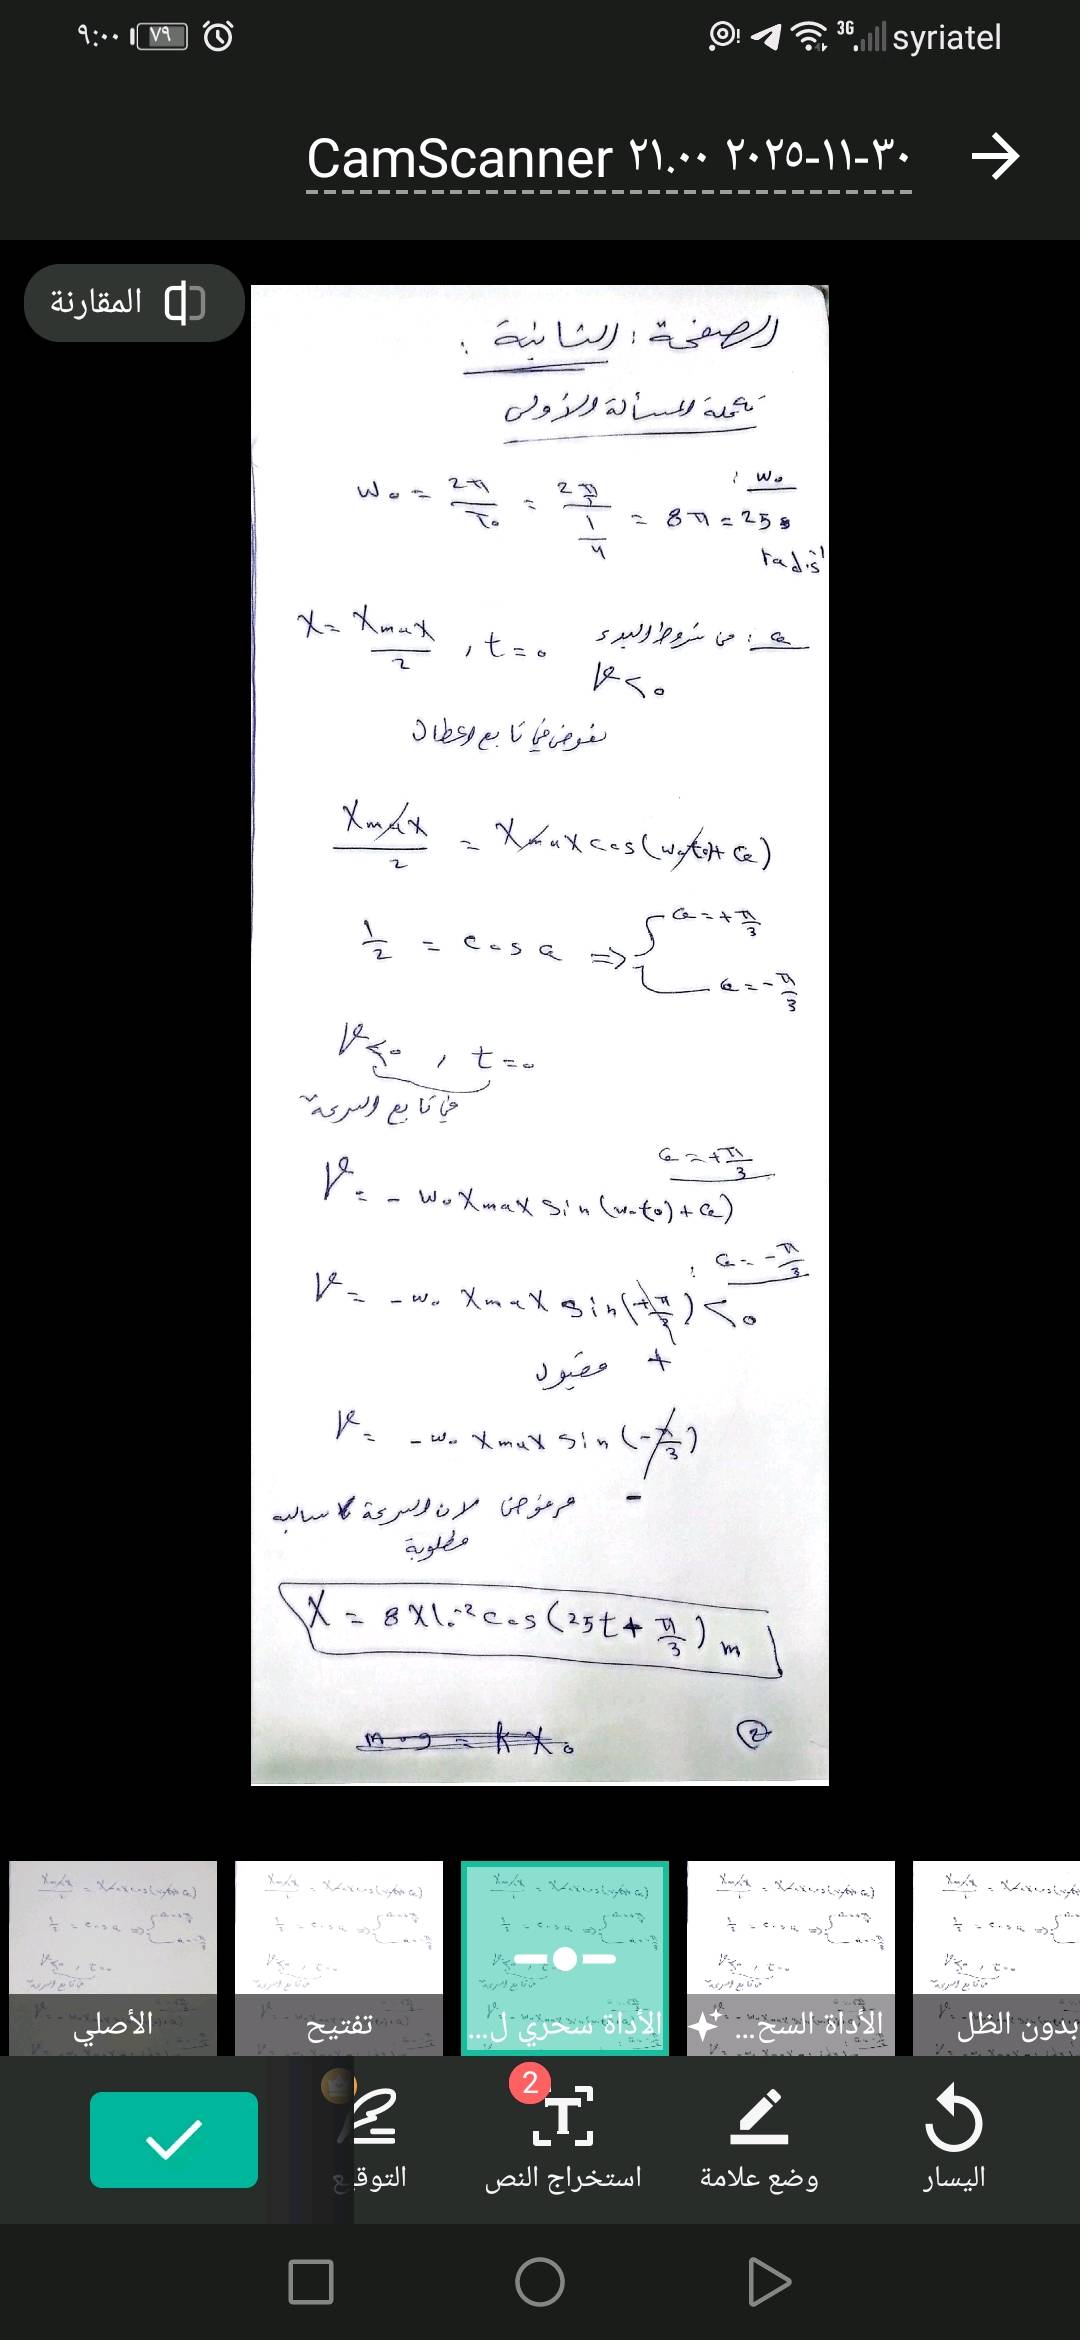 ٩:٠٠ ٧٩ 3G syriatel
CamScanner ٢١.٠٠ ٢٠٢٥-١١-٣٠
المقارنة
الصفحة : الثانية :
تكملة المسألة الأولى
ω₀ :
ω₀ = 2π/T₀ = 2π/(1/4) = 8π = 25
rad.s⁻¹
φ : من شروط البدء
X = Xmax/2 , t = 0
v < 0
نعوض في تابع المطال
Xmax/2 = Xmax cos(ω₀t0 + φ)
1/2 = cos φ ⇒ { φ = +π/3
φ = -π/3
v < 0 , t = 0
في تابع السرعة
φ = +π/3
v = - ω₀ Xmax sin(ω₀t0) + φ)
φ = -π/3 :
v = - ω₀ Xmax sin(+π/3) < 0
مقبول +
v = - ω₀ Xmax sin(-π/3)
مرفوض لان السرعة سالبه -
مطلوبة
X = 8×10⁻² cos(25t + π/3) m
m.g = k x₀
2
الأصلي
تفتيح
الأداة سحري ل...
الأداة السح...
بدون الظل
2
اليسار
وضع علامة
استخراج النص
التوقيع